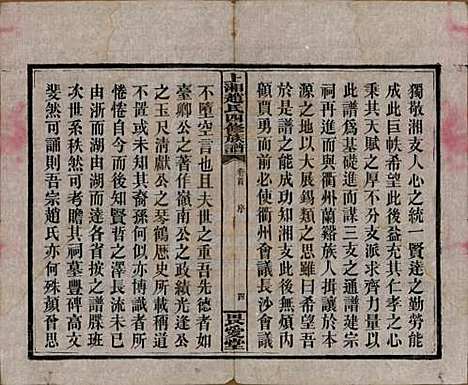 獨敬湘支人心之統一賢達之勤勞能
成此巨帙希望此後益充其仁孝之心
乘其天賦之厚不分支商齊力量以
此譜為基礎進而謀三支之通譜建宗
祠再進而與衢州蘭谿族人謀會合於
源之地以大展錫類之思雖然有希望吾
於是譜之能成功知湘支此後無煩內
顧必有希望起而使衢州會議長沙會議
上湘趙氏四修族譜
卷首
序
四
不墮空言也且夫世之重吾先德者如
臺卿公之卓作嶺南公之政績光逢公
之方直清獻公之琴鶴歷史所稱載道
不置或者其裔孫何似亦博識者所
惓惓自今以後知賢哲之澤長流未已
由浙而湖由湖而達各省按之譜牒班
次世系秩然可考贈其祠墓豐碑文采
斐然可觀則吾宗趙氏亦何殊顏曾思